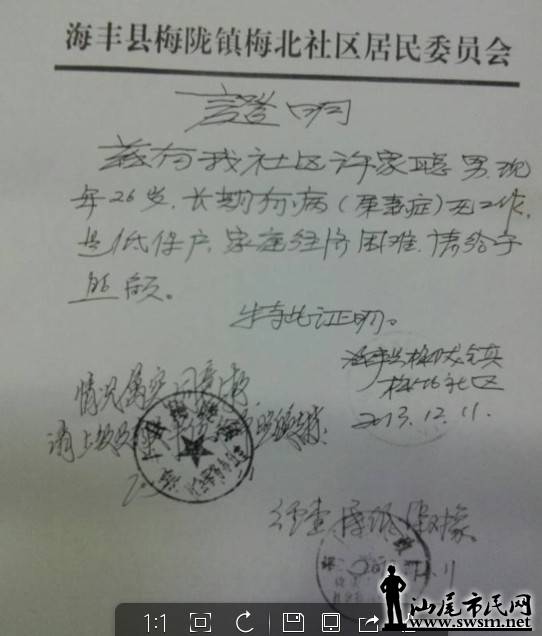 海丰县梅陇镇梅北社区居民委员会
證明
兹有我社区许家聪男,现
年26岁,长期有病(尿毒症)无工作,
是低保户,家庭经济困难,请给予
照顾。
特此证明。
海丰县梅陇镇
梅北社区
2013.12.11.
情况属实,同意上报,
请上级
经查属低保对象。
1:1
汕尾市民网
www.swsm.net